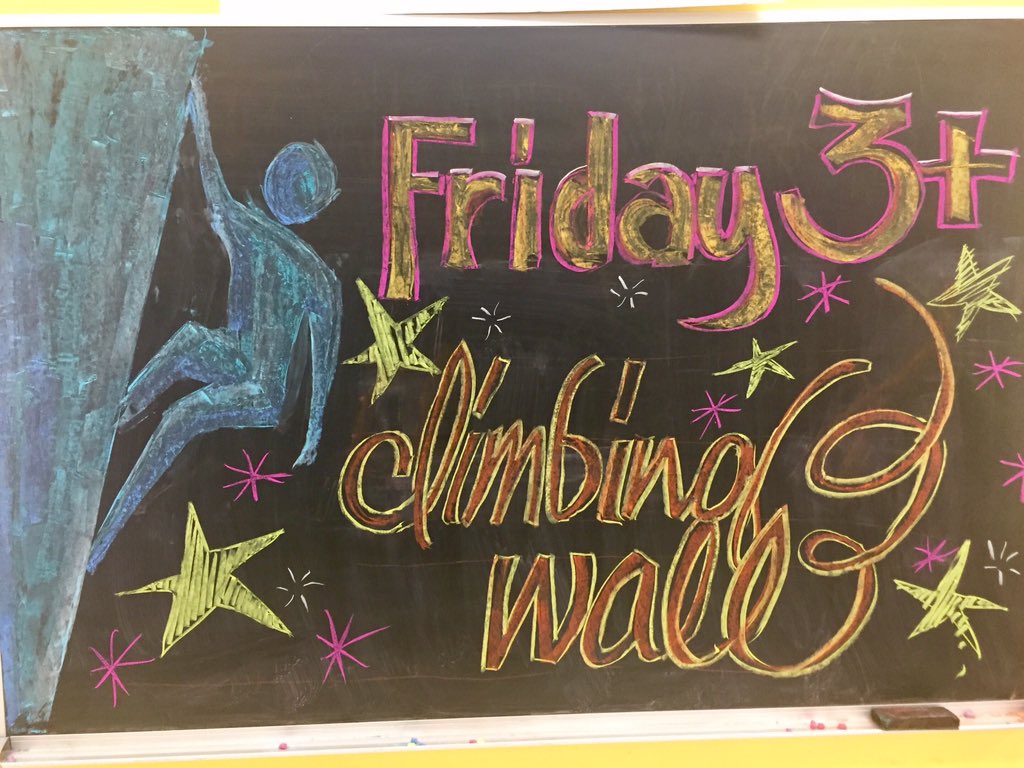 Friday 3+
climbing
wall